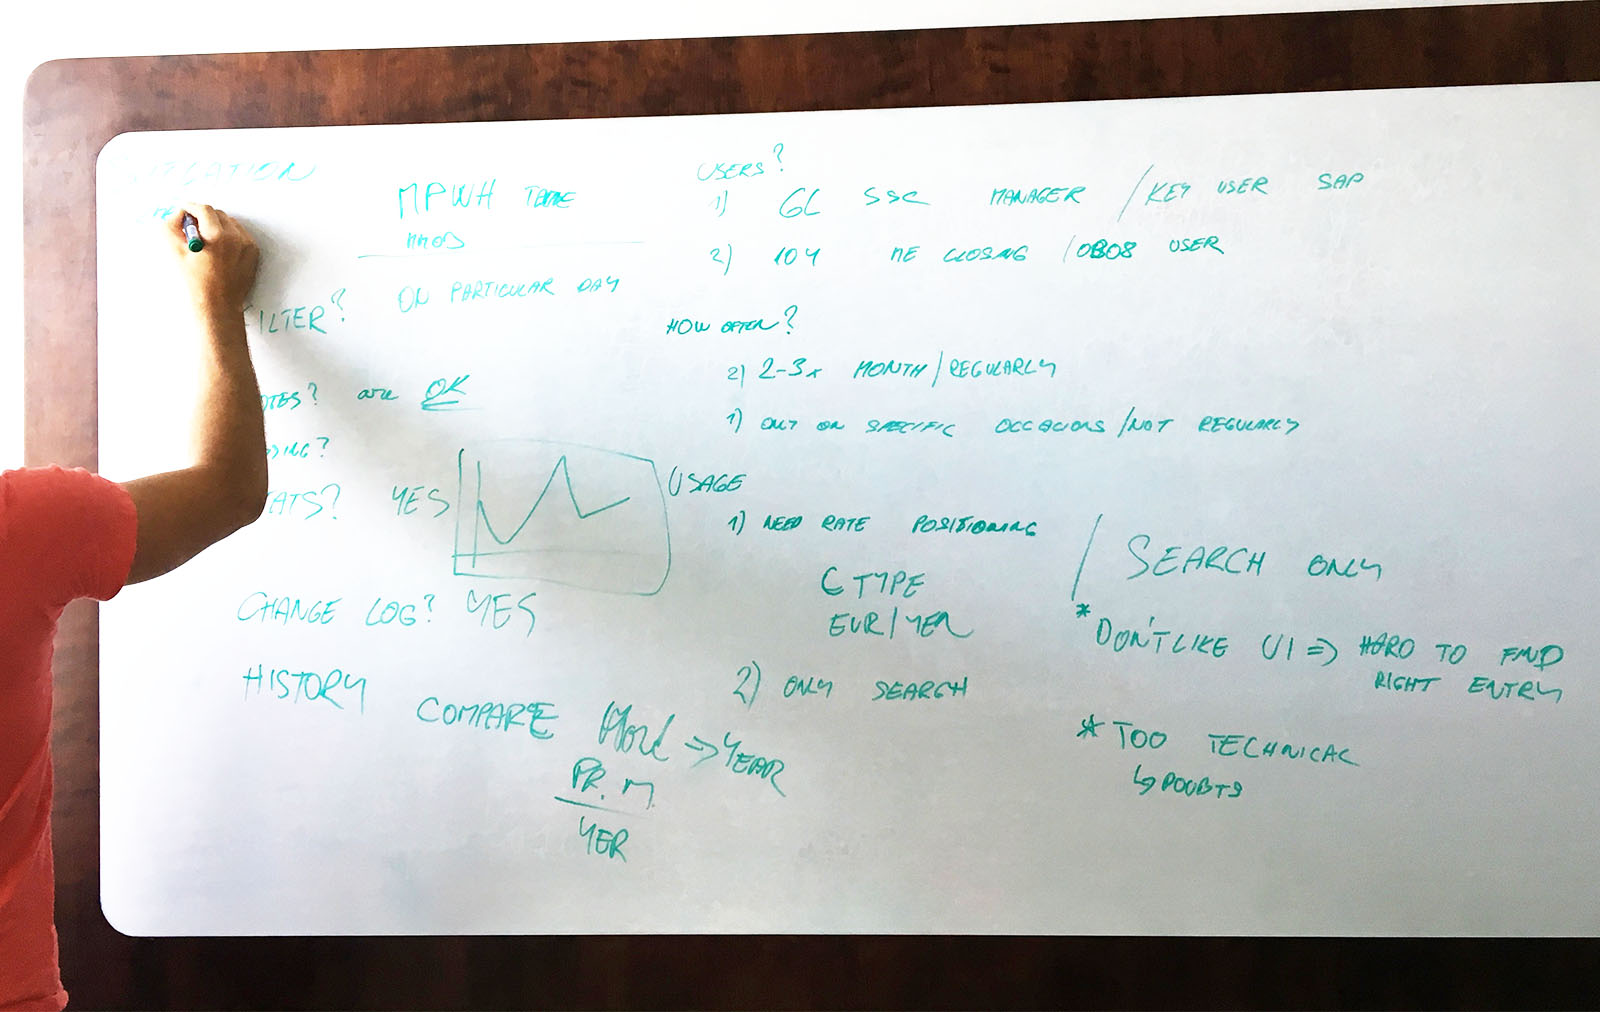 MPWH
ON PARTICULAR DAY
FILTER?
ARE OK
YES
CHANGE LOG? YES
HISTORY
COMPARE => YEAR
PR. M.
YER
USERS?
1) GL SSC MANAGER / KEY USER SAP
2) 104 ME CLOSING / OB08 USER
HOW OFTEN?
2) 2-3x MONTH / REGULARLY
1) ONLY ON SPECIFIC OCCASIONS / NOT REGULARLY
USAGE
1) NEED RATE POSITIONING
C TYPE
EUR / YEN
2) ONLY SEARCH
/ SEARCH ONLY
* DON'T LIKE UI => HARD TO FIND
RIGHT ENTRY
* TOO TECHNICAL
↳ DOUBTS